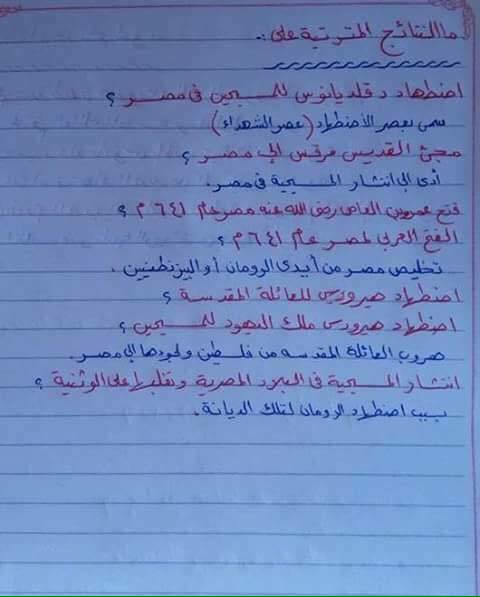 ما النتائج المترتبة على :.
اضطهاد دقلديانوس للمسيحين فى مصر ؟
سمى بعصر الأضطهاد (عصر الشهداء)
مجئ القديس مرقس إلى مصر ؟
أدى إلى انتشار المسيحية فى مصر.
فتح عمروبن العاص رضى الله عنه مصر عام ٦٤١ م ؟
الفتح العربى لمصر عام ٦٤١ م ؟
تخليص مصر من أيدى الرومان أو البيزنطينين .
اضطهاد هيرودس للعائلة المقدسة ؟
اضطهاد هيرودس ملك اليهود للمسيحين ؟
هروب العائلة المقدسه من فلسطين ولجوءها إلى مصر.
انتشار المسيحية فى البلاد المصرية وتغلبها على الوثنية ؟
بسبب اضطهاد الرومان لتلك الديانة .